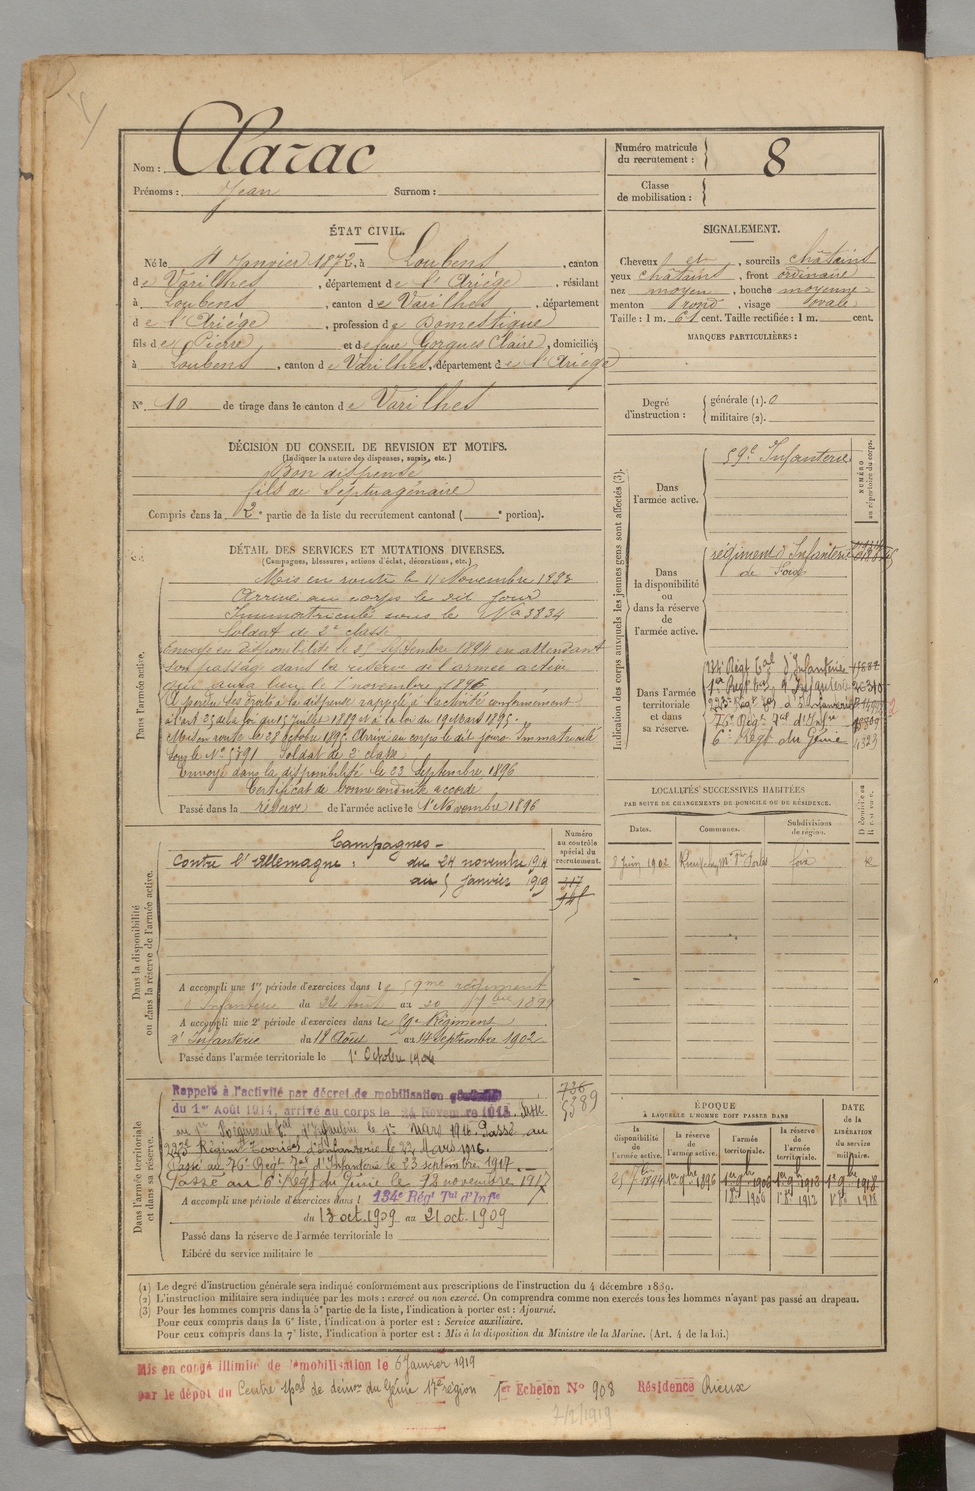 Nom : Clarac
Prénoms : Jean Surnom :
Numéro matricule du recrutement : 8
Classe de mobilisation :
ÉTAT CIVIL.
Né le 4 Janvier 1872, à Loubens, canton
de Varilhes, département de l'Ariége, résidant
à Loubens, canton de Varilhes, département
de l'Ariége, profession de Domestique
fils de Pierre et de feue Gorgues Claire, domiciliés
à Loubens, canton de Varilhes, département de l'Ariége
N° 10 de tirage dans le canton de Varilhes
SIGNALEMENT.
Cheveux et, sourcils châtains
yeux châtains, front ordinaire
nez moyen, bouche moyenne
menton rond, visage ovale
Taille : 1 m. 61 cent. Taille rectifiée : 1 m. cent.
MARQUES PARTICULIÈRES :
Degré d'instruction : générale (1). 0
militaire (2).
DÉCISION DU CONSEIL DE REVISION ET MOTIFS.
(Indiquer la nature des dispenses, sursis, etc.)
Bon dispensé
fils de Septuagénaire
Compris dans la 2e partie de la liste du recrutement cantonal ( e portion).
DÉTAIL DES SERVICES ET MUTATIONS DIVERSES.
(Campagnes, blessures, actions d'éclat, décorations, etc.)
Dans l'armée active.
Mis en route le 11 Novembre 1893
Arrivé au corps le dit jour
Immatriculé sous le No 3834
Soldat de 2e classe
Envoyé en disponibilité le 25 septembre 1894 en attendant
son passage dans la réserve de l'armée active
qui aura lieu le 1 novembre 1896
A perdu ses droits à la dispense rappelé à l'activité conformément
à l'art. 23 de la loi du 15 juillet 1889 et à la loi du 19 Mars 1895.
Mis en route le 28 octobre 1895. Arrivé au corps le dit jour. Immatriculé
sous le No 5891 Soldat de 2e classe
Envoyé dans la disponibilité le 23 Septembre 1896
Certificat de bonne conduite accordé
Passé dans la réserve de l'armée active le 1er Novembre 1896
Indication des corps auxquels les jeunes gens sont affectés (3).
NUMÉRO au répertoire du corps.
Dans l'armée active.
59e Infanterie
Dans la disponibilité ou dans la réserve de l'armée active.
régiment d'Infanterie
de Foix
Dans l'armée territoriale et dans sa réserve.
134e Régt Tal d'Infanterie
1er Régt Tal d'Infanterie
223e Régt Tal d'Infanterie
76e Régt Tal d'Infie
6e Régt du Génie 4323
LOCALITÉS SUCCESSIVES HABITÉES
PAR SUITE DE CHANGEMENTS DE DOMICILE OU DE RÉSIDENCE.
Dates. Communes. Subdivisions de région. Domicile ou Résidence.
8 Juin 1902 foix R
Dans la disponibilité ou dans la réserve de l'armée active.
Numéro au contrôle spécial du recrutement.
Campagnes -
Contre l'Allemagne : du 24 novembre 1914
au 5 janvier 1919
317
945
A accompli une 1re période d'exercices dans le 59me régiment
d'Infanterie du 24 Août au 20 7bre 1899
A accompli une 2e période d'exercices dans le 59e Régiment
d'Infanterie du 18 Août au 14 Septembre 1902
Passé dans l'armée territoriale le 1er Octobre 1906
Dans l'armée territoriale et dans sa réserve.
736
5389
Rappelé à l'activité par décret de mobilisation générale
du 1er Août 1914, arrivé au corps le 24 Novembre 1914. Passé
au 1er Régiment Tal d'Infanterie le 1er Mars 1916. Passé au
223e Régiment Territ d'Infanterie le 22 Mars 1916.
Passé au 76e Régt Tal d'Infanterie le 23 septembre 1917.
Passé au 6e Régt du Génie le 12 novembre 1917
A accompli une période d'exercices dans l 134e Régt Tal d'Infie
du 13 oct. 1909 au 21 oct. 1909
Passé dans la réserve de l'armée territoriale le
Libéré du service militaire le
ÉPOQUE
À LAQUELLE L'HOMME DOIT PASSER DANS
la disponibilité de l'armée active. la réserve de l'armée active. l'armée territoriale. la réserve de l'armée territoriale.
DATE de la LIBÉRATION du service militaire.
25 7bre 1894 1er 9bre 1896 1er 9bre 1906 1er 9bre 1912 1er 9bre 1918
1er 8bre 1906 1er 8bre 1912 1er 8bre 1918
(1) Le degré d'instruction générale sera indiqué conformément aux prescriptions de l'instruction du 4 décembre 1889.
(2) L'instruction militaire sera indiquée par les mots : exercé ou non exercé. On comprendra comme non exercés tous les hommes n'ayant pas passé au drapeau.
(3) Pour les hommes compris dans la 5e partie de la liste, l'indication à porter est : Ajourné.
Pour ceux compris dans la 6e liste, l'indication à porter est : Service auxiliaire.
Pour ceux compris dans la 7e liste, l'indication à porter est : Mis à la disposition du Ministre de la Marine. (Art. 4 de la loi.)
Mis en congé illimité de démobilisation le 6 Janvier 1919
par le dépôt du Centre spal de démon du Génie 17e région 1er Echelon No 908 Résidence Rieux
7/2/1919